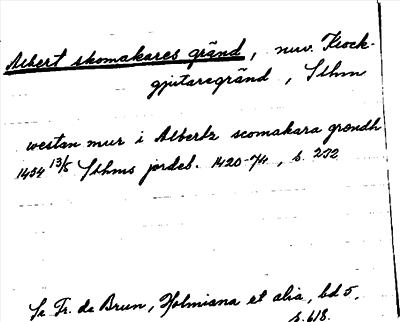 Albert skomakares gränd, nuv. Klock-
gjutaregränd, Sthm
westan mur i Albertz scomakara grendh
1454 13/5 Sthms jordeb. 1420-74, s. 272
Se Fr. de Brun, Holmiana et alia, bd 5,
s. 618.